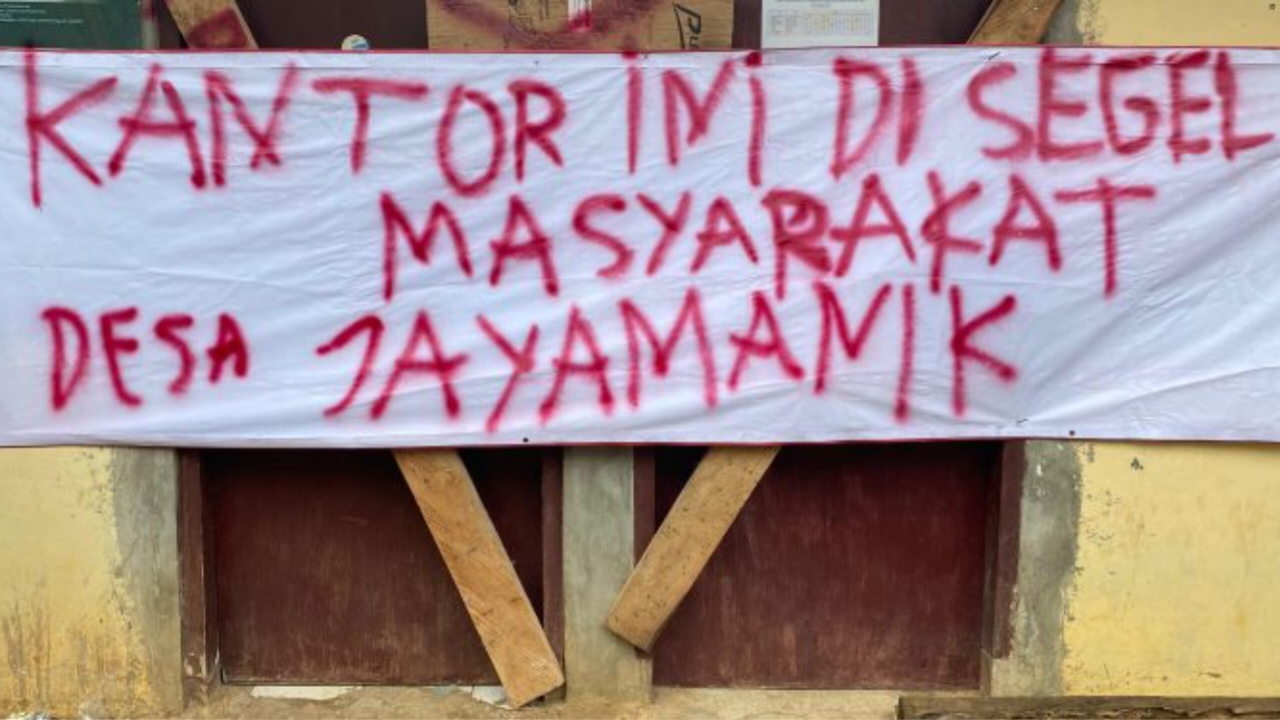 KANTOR INI DI SEGEL
MASYARAKAT
DESA JAYAMANIK